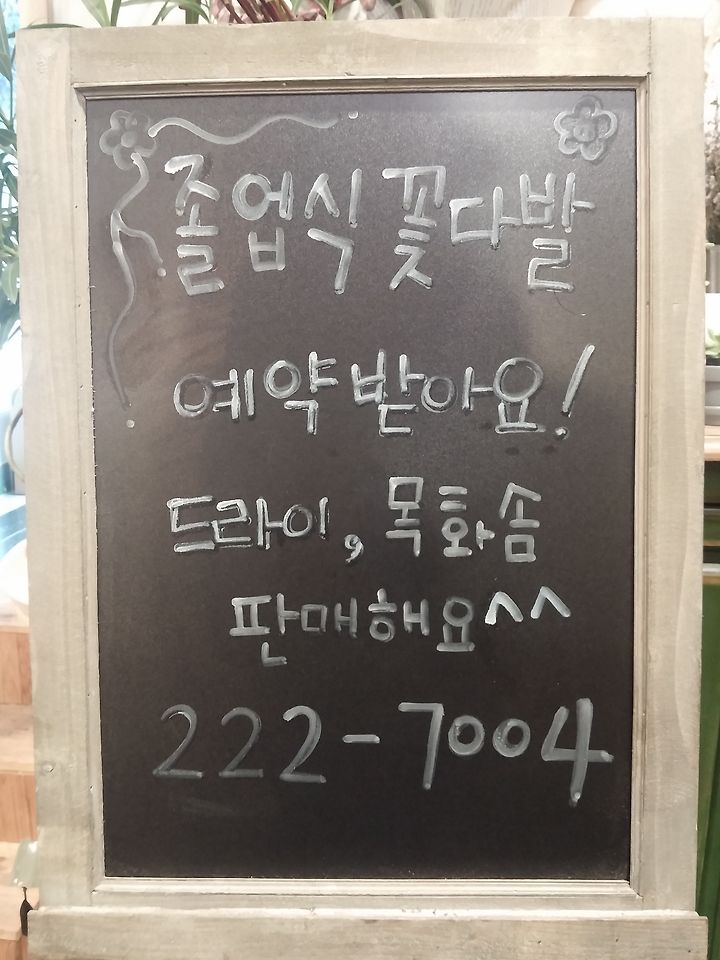 졸업식 꽃다발
예약 받아요!
드라이, 목화솜
판매해요^^
222-7004